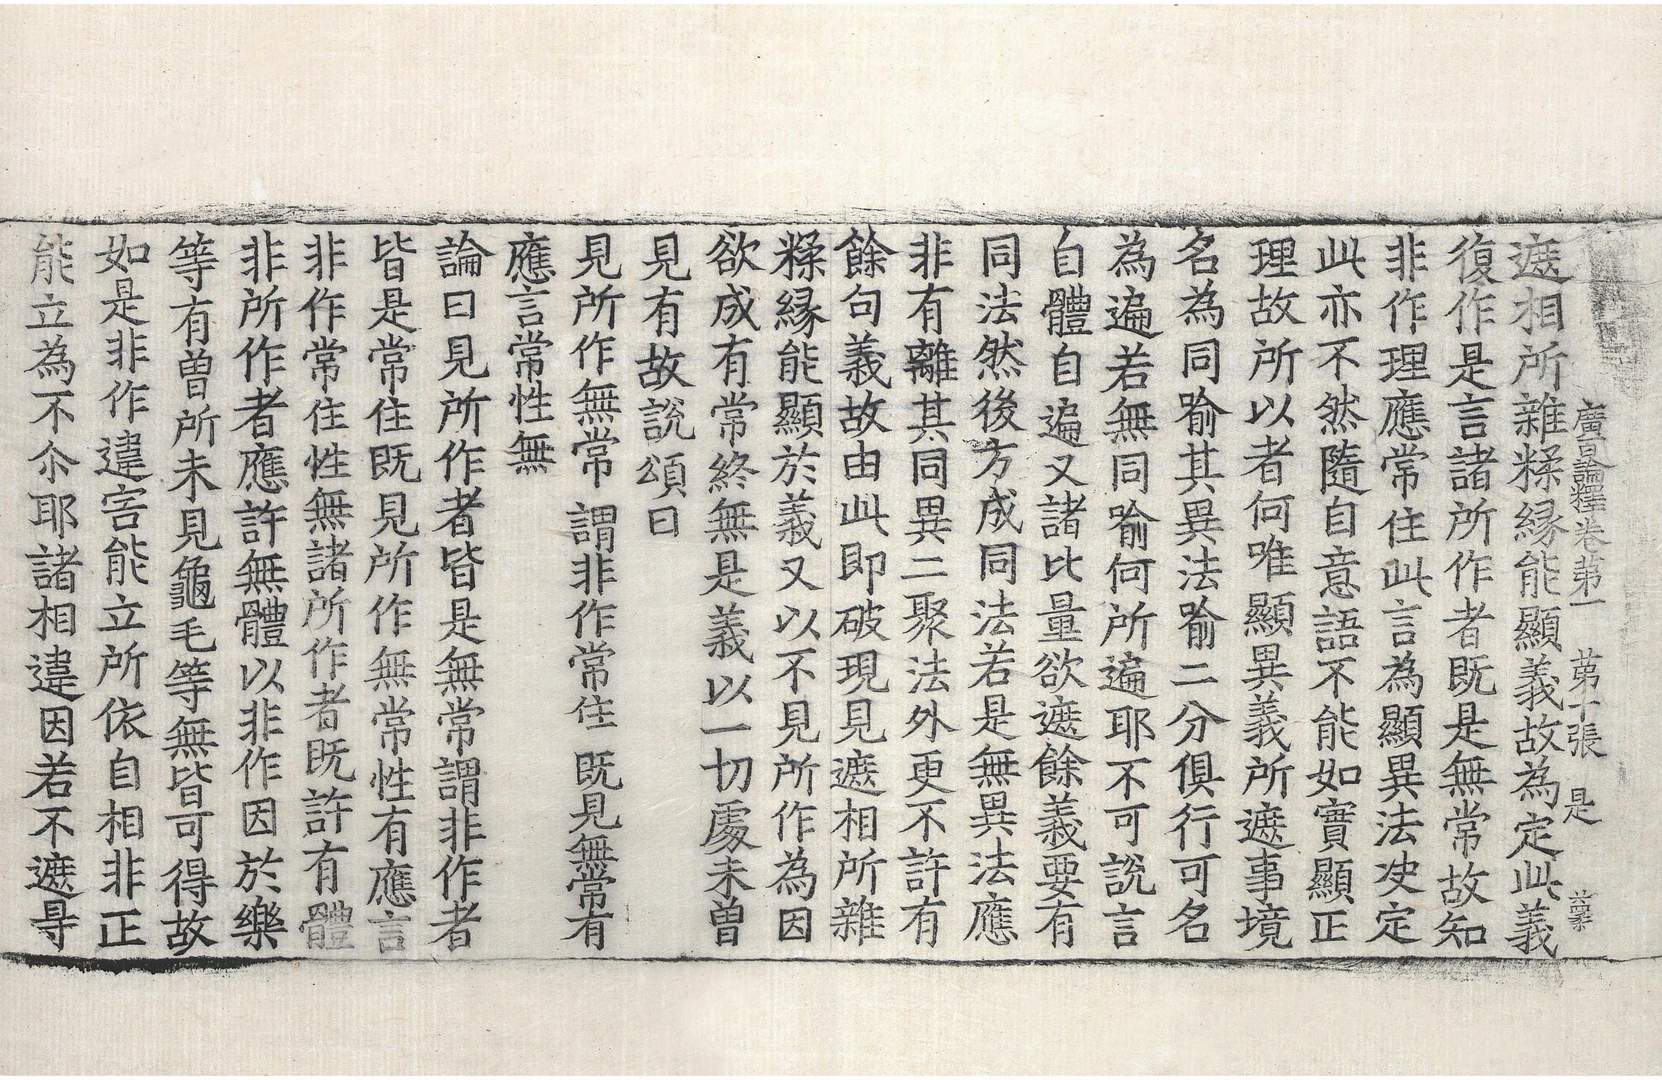 廣百論釋卷第一 第十張 是
遮相所雜糅縁能顯義故為定此義
復作是言諸所作者既是無常故知
非作理應常住此言為顯異法决定
此亦不然隨自意語不能如實顯正
理故所以者何唯顯異義所遮事境
名為同喻其異法喻二分俱行可名
為遍若無同喻何所遍耶不可說言
自體自遍又諸比量欲遮餘義要有
同法然後方成同法若是無異法應
非有離其同異二聚法外更不許有
餘句義故由此即破現見遮相所雜
糅縁能顯於義又以不見所作為因
欲成有常終無是義以一切處未曾
見有故說頌曰
見所作無常 謂非作常住 既見無常有
應言常性無
論曰見所作者皆是無常謂非作者
皆是常住既見所作無常性有應言
非作常住性無諸所作者既許有體
非所作者應許無體以非作因於樂
等有曾所未見龜毛等無皆可得故
如是非作違害能立所依自相非正
能立為不尒耶諸相違因若不遮㝵